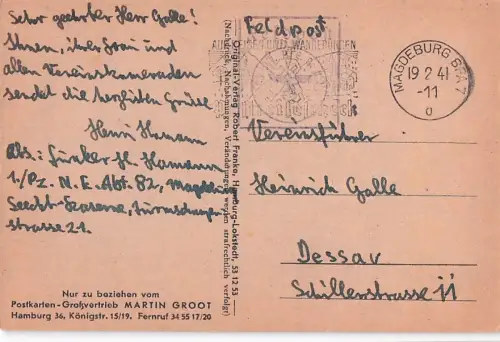 Sehr geehrter Herr Galle!
Ihnen, ihrer Frau und
allen Vereinskameraden
sendet die herzlichsten Grüsse
Henri Hamann
Abs: Funker H. Hamann
1./Pz. N. E. Abt. 82, Magdeburg
Seeckt-Kaserne,
strasse 21.
Nur zu beziehen vom
Postkarten-Großvertrieb MARTIN GROOT
Hamburg 36, Königstr. 15/19. Fernruf 34 55 17/20
Original-Verlag Robert Franke, Hamburg-Lokstedt, 53 12 53
(Nachdruck, Nachahmungen, Veränderungen werden strafrechtlich verfolgt)
Feldpost
MAGDEBURG
19.2.41
-11
o
Vereinsführer
Heinrich Galle
Dessau
Schillerstrasse 11